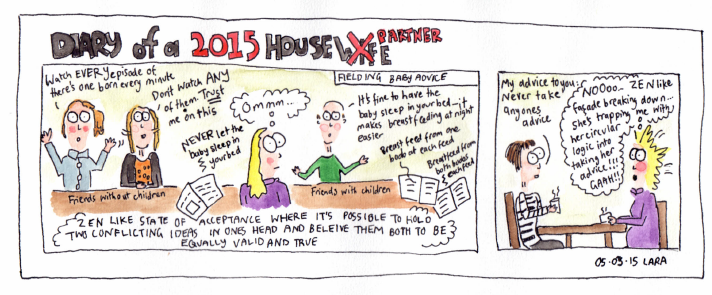 DIARY of a 2015 HOUSEWIFE
PARTNER
FIELDING BABY ADVICE
Watch EVERY episode of
there's one born every minute
Dont watch ANY
of them. Trust
me on this
NEVER let the
baby sleep in
your bed
Ommm..
It's fine to have the
baby sleep in your bed - it
makes breastfeeding at night
easier
Breast feed from one
boob at each feed
Breastfeed from
both boobs
each feed
Friends without children
Friends with children
ZEN LIKE STATE OF ACCEPTANCE WHERE IT'S POSSIBLE TO HOLD
TWO CONFLICTING IDEAS IN ONES HEAD AND BELEIVE THEM BOTH TO BE
EQUALLY VALID AND TRUE
My advice to you:
Never take
anyones
advice
NOOOO... ZEN like
façade breaking down...
she's trapping me with
her circular
logic into
taking her
advice!!!
GAAH!!
05·03·15 LARA